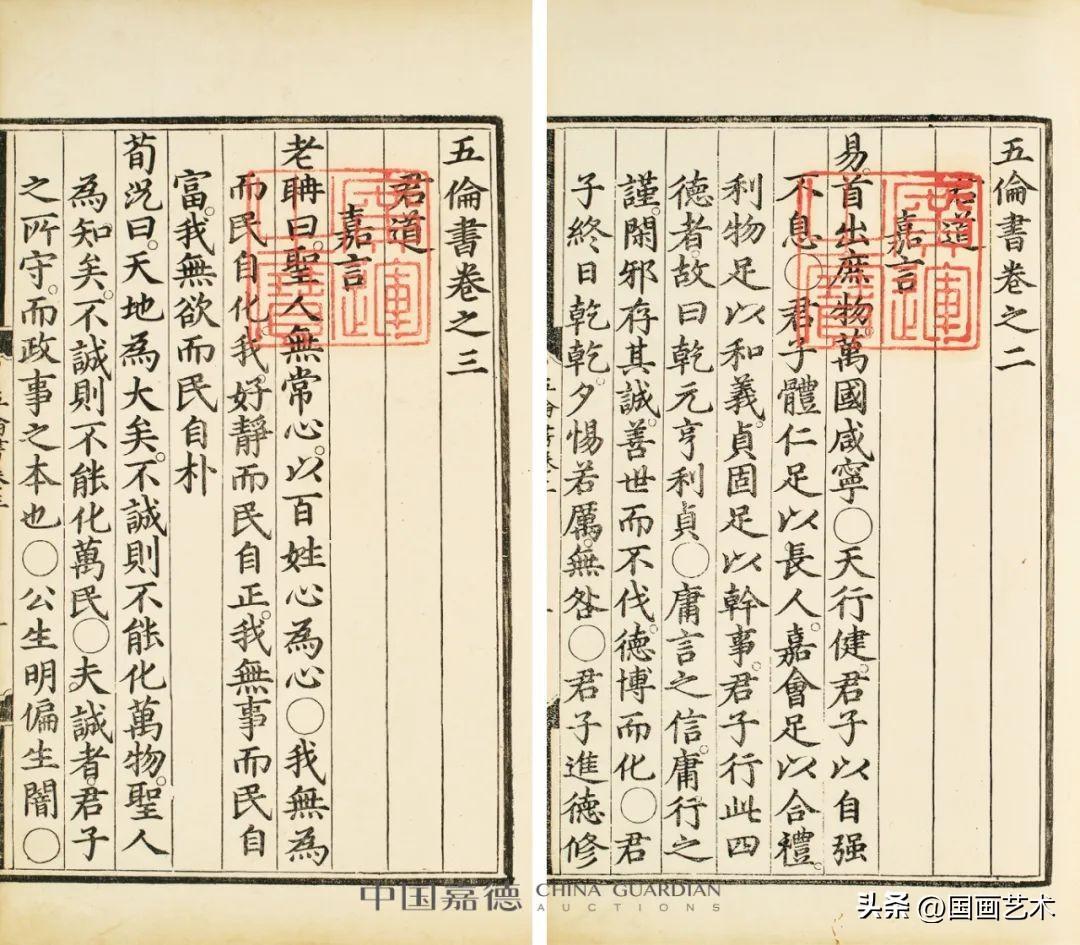 五倫書卷之二
君道
嘉言
易。首出庶物。萬國咸寧〇天行健。君子以自强
不息〇君子體仁足以長人。嘉會足以合禮。
利物足以和義。貞固足以幹事。君子行此四
德者。故曰乾元亨利貞〇庸言之信。庸行之
謹。閑邪存其誠。善世而不伐。德博而化〇君
子終日乾乾。夕惕若厲。無咎〇君子進德修
五倫書卷之三
君道
嘉言
老聃曰。聖人無常心。以百姓心為心〇我無為
而民自化。我好靜而民自正。我無事而民自
富。我無欲而民自朴
荀況曰。天地為大矣。不誠則不能化萬物。聖人
為知矣。不誠則不能化萬民〇夫誠者。君子
之所守。而政事之本也〇公生明偏生闇〇
中国嘉德 CHINA GUARDIAN
AUCTIONS
头条 @国画艺术